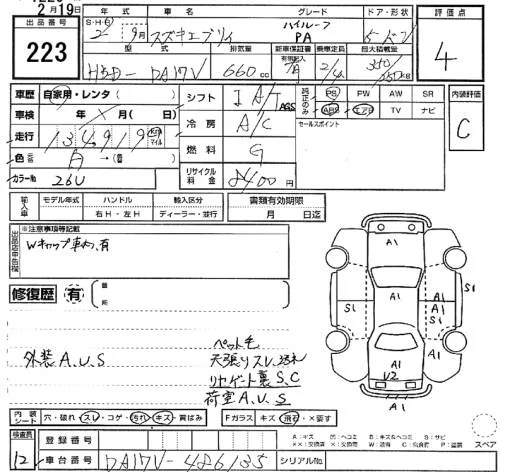 2月19日
出品番号
223
年式 車名 グレード ドア・形状
S・H・R
2年9月 スズキエブリイ ハイルーフ PA 5ドアバン
型式 排気量 新車保証書 乗車定員 最大積載量
有 無記入
HBD-DA17V 660cc 2/4 350/250kg
評価点
4
車歴 自家用・レンタ( )
車検 年 月( 日)
走行 134919 km マイル
色 元色 A →(替 )
カラーNo 26U
シフト IA/T AGS
冷房 A/C
燃料 G
リサイクル料金 8400円
純正のみ PS PW AW SR
ABS エアB TV ナビ
セールスポイント
内装評価
C
輸入車 モデル年式 ハンドル 輸入区分
右H・左H ディーラー・並行
書類有効期限
月 日迄
出品店申告欄
※注意事項等記載
Wキャップ車わ有
修復歴 有
外装A.U.S
ペット毛
天張りスレ、汚れ
リヤゲート裏S.C
荷室A.U.S
A1
A1
S1
S1
A1
A1
S1
A1
S1
A1
U2
内装シート 穴・破れ・スレ・コゲ・汚れ・キズ・黄ばみ
Fガラス キズ・飛石・×要す
A：キズ U：ヘコミ B：キズ&ヘコミ S：サビ
××：交換済 ×：交換要 W：波有 C：腐食 P：塗装
スペア
検査員
12
登録番号
車台番号 DA17V-486135 シリアルNo.